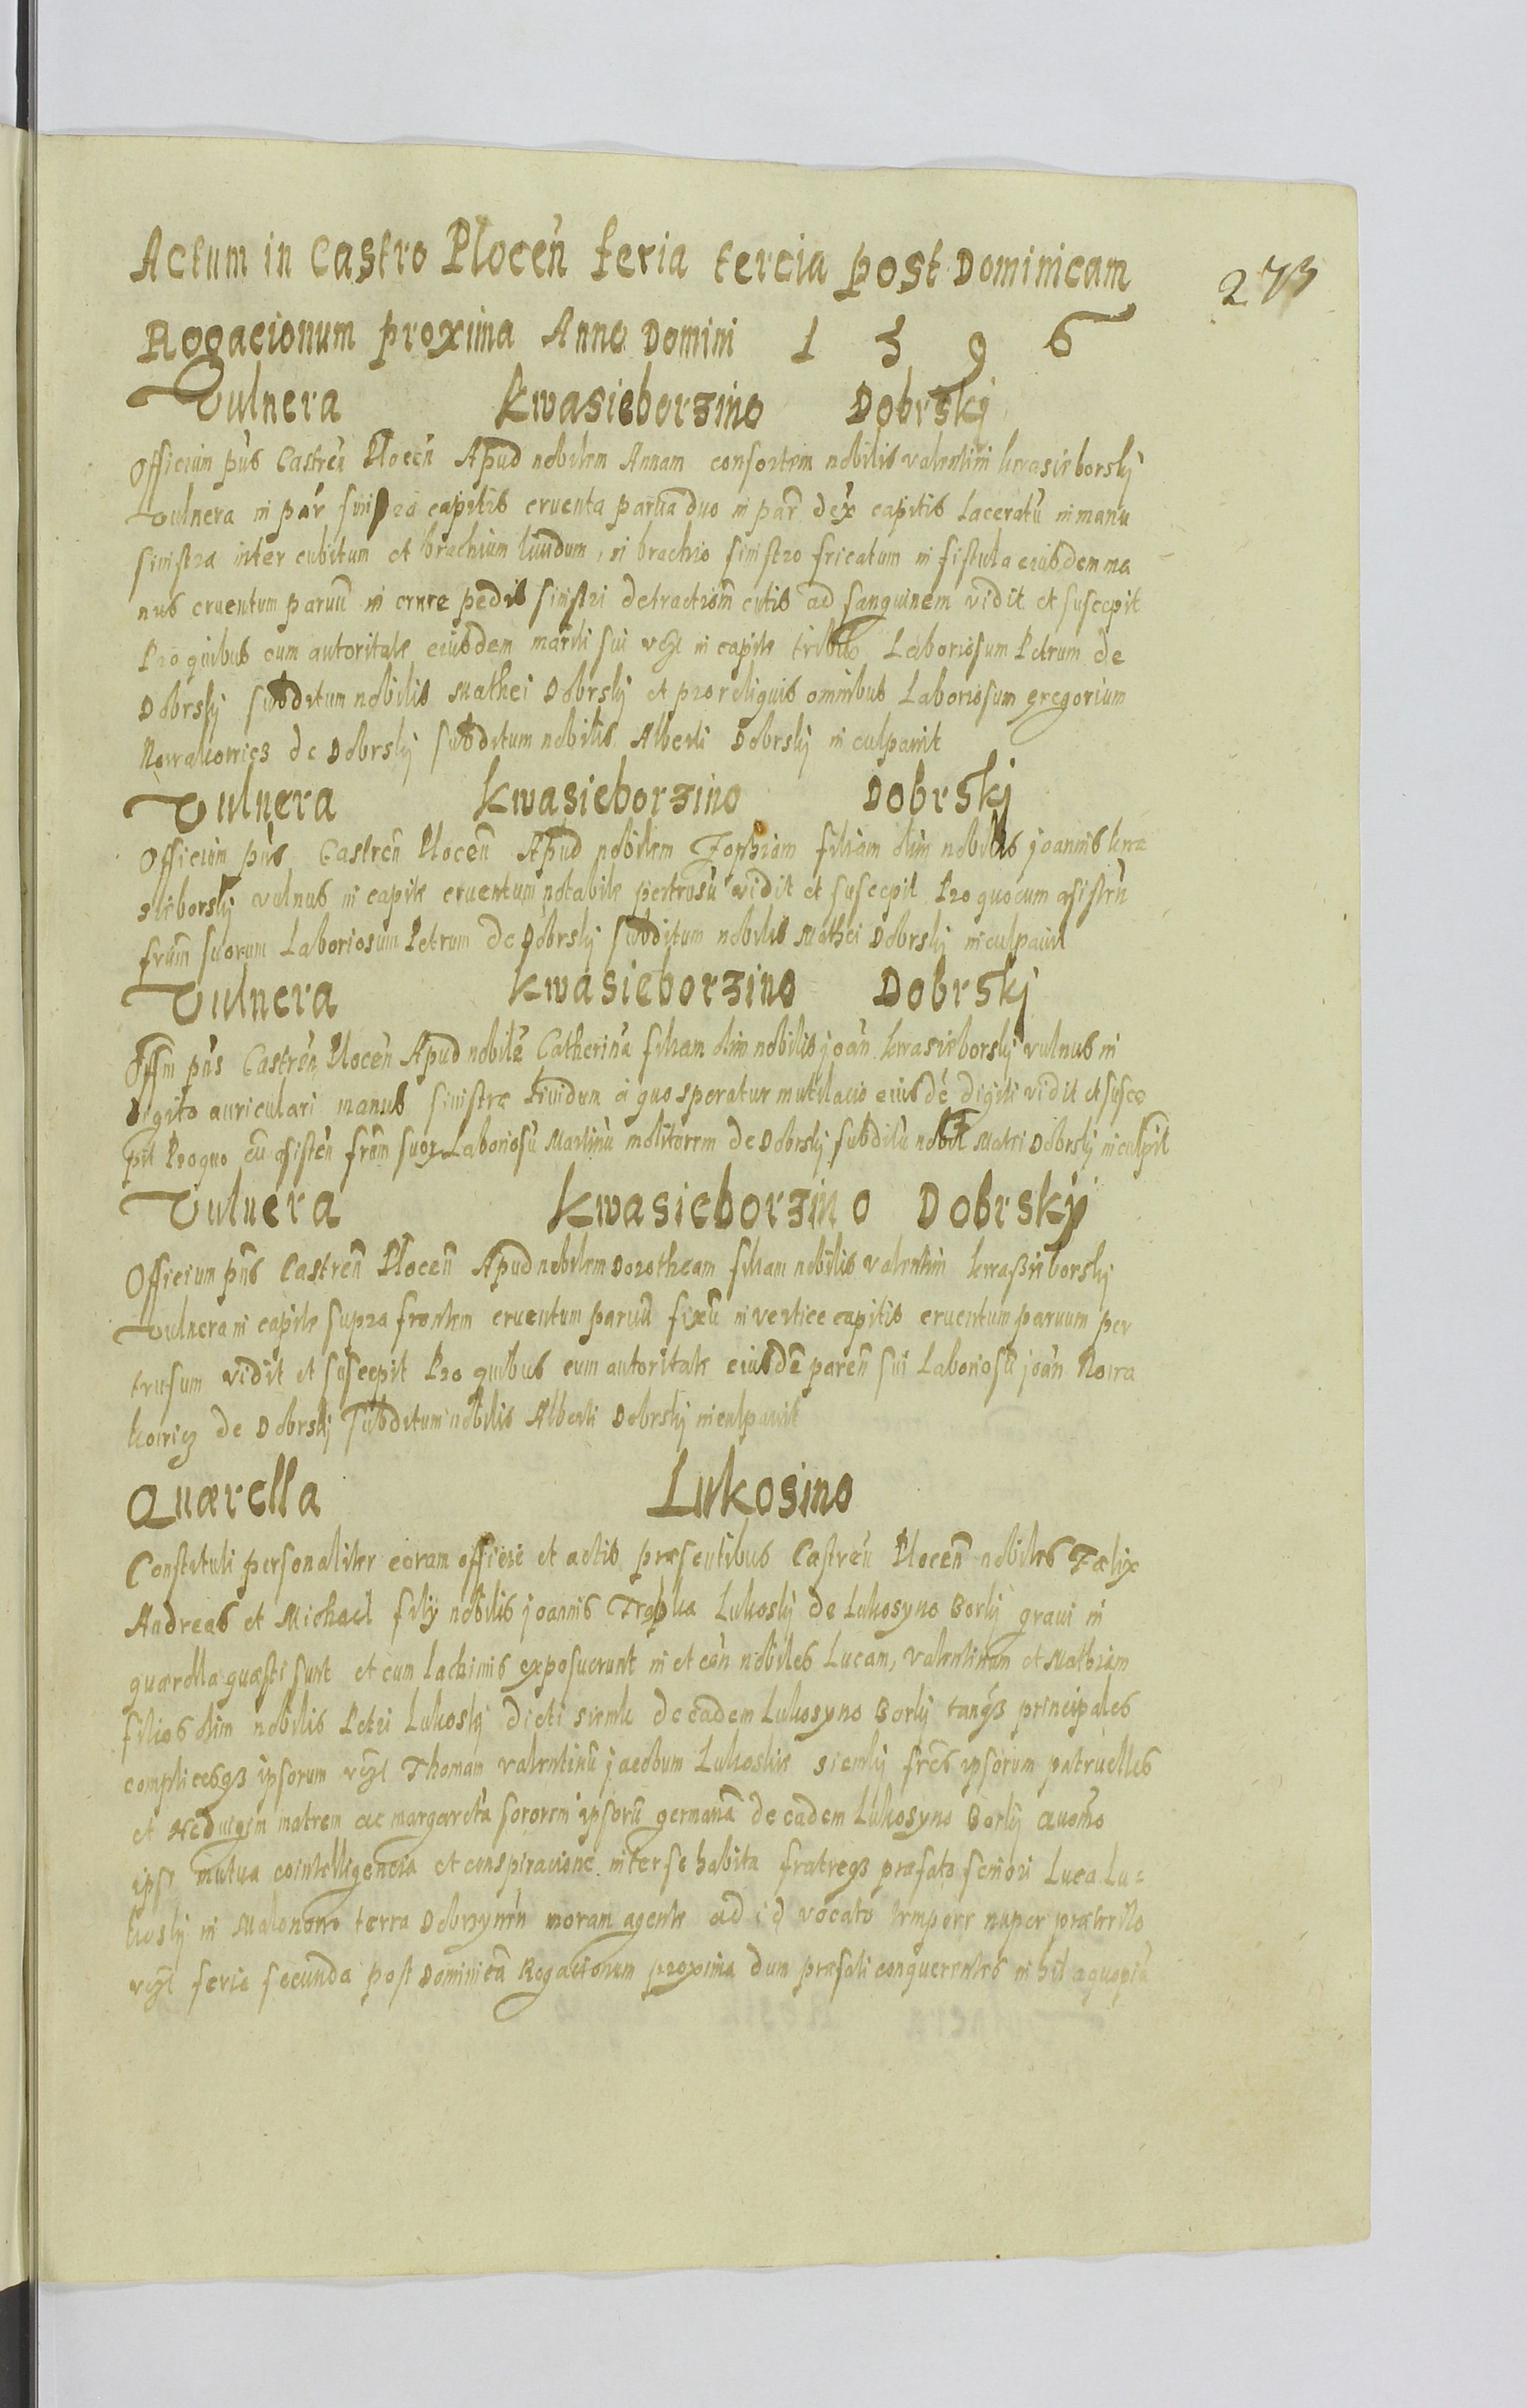 Actum in Castro Plocen̄ feria tercia post Dominicam
273
Rogacionum proxima Anno Domini 1 5 9 6
Vulnera Kwasieborzino Dobrskj
Officium pn̄s Castren̄ Plocen̄ Apud nobilem Annam consortem nobilis valentini kwasieborskj
Vulnera in par sinistra capitis cruenta parua duo in par dex capitis Laceratū in manu
sinistra inter cubitum et brachium liuidum, in brachio sinistro fricatum in fistula eiusdem ma
nus cruentum paruū in crure pedis sinistri detractiom̄ cutis ad sanguinem vidit et suscepit
Pro quibus cum autoritate eiusdem mariti sui vczl in capite tribus Laboriosum Petrum de
Dobrskj subditum nobilis Mathei Dobrskj et pro reliquis omnibus Laboriosum gregorium
Nowakowicz de Dobrskj subditum nobilis Alberti Dobrskj inculpauit
Vulnera Kwasieborzino Dobrskj
Officium pn̄s Castren̄ Plocen̄ Apud nobilem Zophiam filiam olim nobilis joannis kwa
sieborskj vulnus in capite cruentum notabile pertrusū vidit et suscepit Pro quo cum asisten̄
fratrum̄ suorum Laboriosum Petrum de Dobrskj subditum nobilis Mathei Dobrskj inculpauit
Vulnera Kwasieborzino Dobrskj
Offm pn̄s Castren̄ Plocen̄ Apud nobilē Catherinā filiam olim nobilis joan̄ kwasieborskj vulnus in
Digito auriculari manus sinistræ liuidum a quo speratur mutilacio eiusdē digiti vidit et susce
pit Pro quo cū asisten̄ frūm suorz Laboriosū Martinū molitorem de Dobrskj subditū nobil Matei Dobrskj inculpit
Vulnera Kwasieborzino Dobrskÿ
Officium pn̄s Castren̄ Plocen̄ Apud nobilem Dorotheam filiam nobilis valentini kwaßieborskj
Vulnera in capite supra frontem cruentum paruū fixū in vertice capitis cruentum paruum per
trusum vidit et suscepit Pro quibus cum autoritate eiusdē paren̄ sui Laboriosū joan̄ Nowa
kowicz de Dobrskj subditum nobilis Alberti Dobrskj inculpauit
Quærella Lukosino
Constituti personaliter coram officio et actis præsentibus Castren̄ Plocen̄ nobiles Fælix
Andreas et Michael filÿ nobilis joannis Trabka Lukoskj de Lukosyno Borkj graui in
quærella quæsti sunt et cum lachimis exposuerunt in et con̄ nobiles Lucam, valentinum et Mathiam
filios olim nobilis Petri Lukoskj dicti siemk de eadem Lukosyno Borkj tanqß principales
complicesqß ipsorum vczl Thomam valentinū jacobum Lukoskie siemkj frēs ipsorum patruelles
et Heduigem matrem ac margaretā sororem ipsorū germanā de eadem Lukosyno Borkj quomo
ipsi mutua cointelligencia et conspiracione inter se habita fratreqß præfato seniori Luca Lu=
koskj in Malonowo terra Dobrzynen̄ moram agente ad id vocato tempore nuper præterito
vczl feria secunda post Dominicā Rogacionum proxima dum præfati conquerentes nihil a quopiā